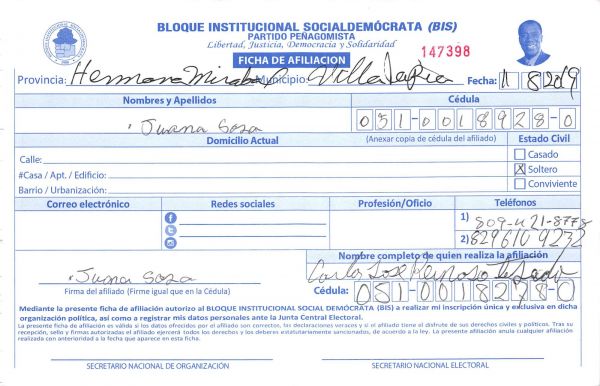 BLOQUE INSTITUCIONAL SOCIALDEMÓCRATA (BIS)
PARTIDO PEÑAGOMISTA
Libertad, Justicia, Democracia y Solidaridad
147398
FICHA DE AFILIACION
Provincia: Hermana Mirabal Municipio: Villa Tapia Fecha: 11 8 2019
Nombres y Apellidos Cédula
Juana Sosa 051-0018928-0
Domicilio Actual (Anexar copia de cédula del afiliado) Estado Civil
Calle: Casado
#Casa / Apt. / Edificio: X Soltero
Barrio / Urbanización: Conviviente
Correo electrónico Redes sociales Profesión/Oficio Teléfonos
1) 809-421-8778
2) 8296109232
Nombre completo de quien realiza la afiliación
Juana Sosa Carlos Jose Reinoso
Firma del afiliado (Firme igual que en la Cédula) Cédula: 051-0018278-0
Mediante la presente ficha de afiliación autorizo al BLOQUE INSTITUCIONAL SOCIAL DEMÓCRATA (BIS) a realizar mi inscripción única y exclusiva en dicha
organización política, así como a registrar mis datos personales ante la Junta Central Electoral.
La presente ficha de afiliación es válida si los datos ofrecidos por el afiliado son correctos, las declaraciones veraces y si el afiliado tiene el disfrute de sus derechos civiles y políticos. Tras su
recepción, sello y firmas autorizadas el afiliado ejercerá todos los derechos y los deberes estatutariamente sancionados, de acuerdo a la ley. La presente afiliación anula cualquier afiliación
realizada con anterioridad a la fecha que aparece en esta ficha.
SECRETARIO NACIONAL DE ORGANIZACIÓN SECRETARIO NACIONAL ELECTORAL